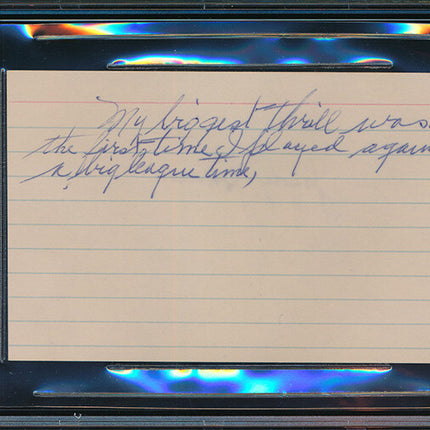 My biggest thrill was
the first time I played again
a big league time,